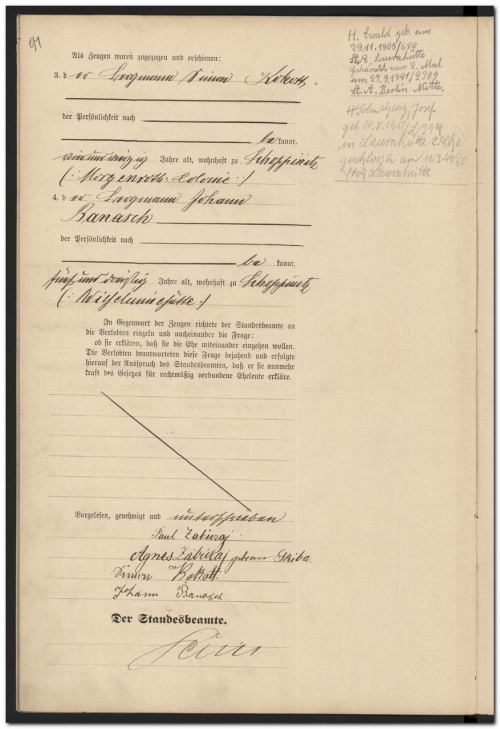 Als Zeugen waren zugezogen und erschienen:
3. der Bergmann Simon Kokott
der Persönlichkeit nach
bekannt,
vierundvierzig Jahre alt, wohnhaft zu Schoppinitz
(: Morgenroth-Colonie :)
4. der Bergmann Johann
Banasch
der Persönlichkeit nach
bekannt,
fünfunddreißig Jahre alt, wohnhaft zu Schoppinitz
(: Wilhelminehütte :)
In Gegenwart der Zeugen richtete der Standesbeamte an
die Verlobten einzeln und nacheinander die Frage:
ob sie erklären, daß sie die Ehe miteinander eingehen wollen.
Die Verlobten beantworteten diese Frage bejahend und erfolgte
hierauf der Ausspruch des Standesbeamten, daß er sie nunmehr
kraft des Gesetzes für rechtmäßig verbundene Eheleute erkläre.
Vorgelesen, genehmigt und unterschrieben
Paul Zabieraj
Agnes Zabieraj geborene Skiba
Simon Kokott
Johann Banasch
Der Standesbeamte.
H. Ewald geb. am
29.11.1903/650
St.A. Laurahütte
Geheiratet zum 2. Mal
am 27.9.1941/2399
St. A. Berlin Mitte.
Georg, Josef
geb.
in Laurahütte
geschlossen am
Laurahütte